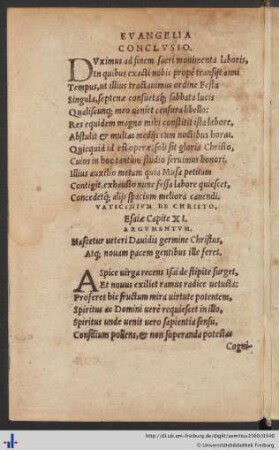 EVANGELIA
CONCLVSIO.
DVximus ad finem sacri monimenta laboris,
In quibus exacti nobis propè transijt anni
Tempus, ut illius tractauimus ordine Festa
Singula, septenæ consuetaq; sabbata lucis
Qualiscunq; meo uenist censura libello:
Res equidem magno mihi constitit ista labore,
Abstulit & multas mediis cum noctibus horas.
Quicquid id est operæ, soli sit gloria Christo,
Cuius in hoc tantùm studio seruimus honori,
Illius auxilio metam quia Musa petitam
Contigit, exhausto nunc fessa labore quiescet,
Concedetq; alijs spacium meliora canendi.
VATICINIVM DE CHRISTO.
Esaiæ Capite XI.
ARGVMENTVM.
Nascetur ueteri Dauidis germine Christus,
Atq; nouam pacem gentibus ille feret.
ASpice uirga recens Isai de stipite surget,
Et nouus exiliet ramus radice uetusta:
Proferet hic fructum mira uirtute potentem,
Spiritus ac Domini uerè requiescet in illo,
Spiritus unde uenit uero sapientia sensu,
Consilium pollens, & non superanda potestas
Cogni-
http://dl.ub.uni-freiburg.de/diglit/
© Universitätsbibliothek Freiburg